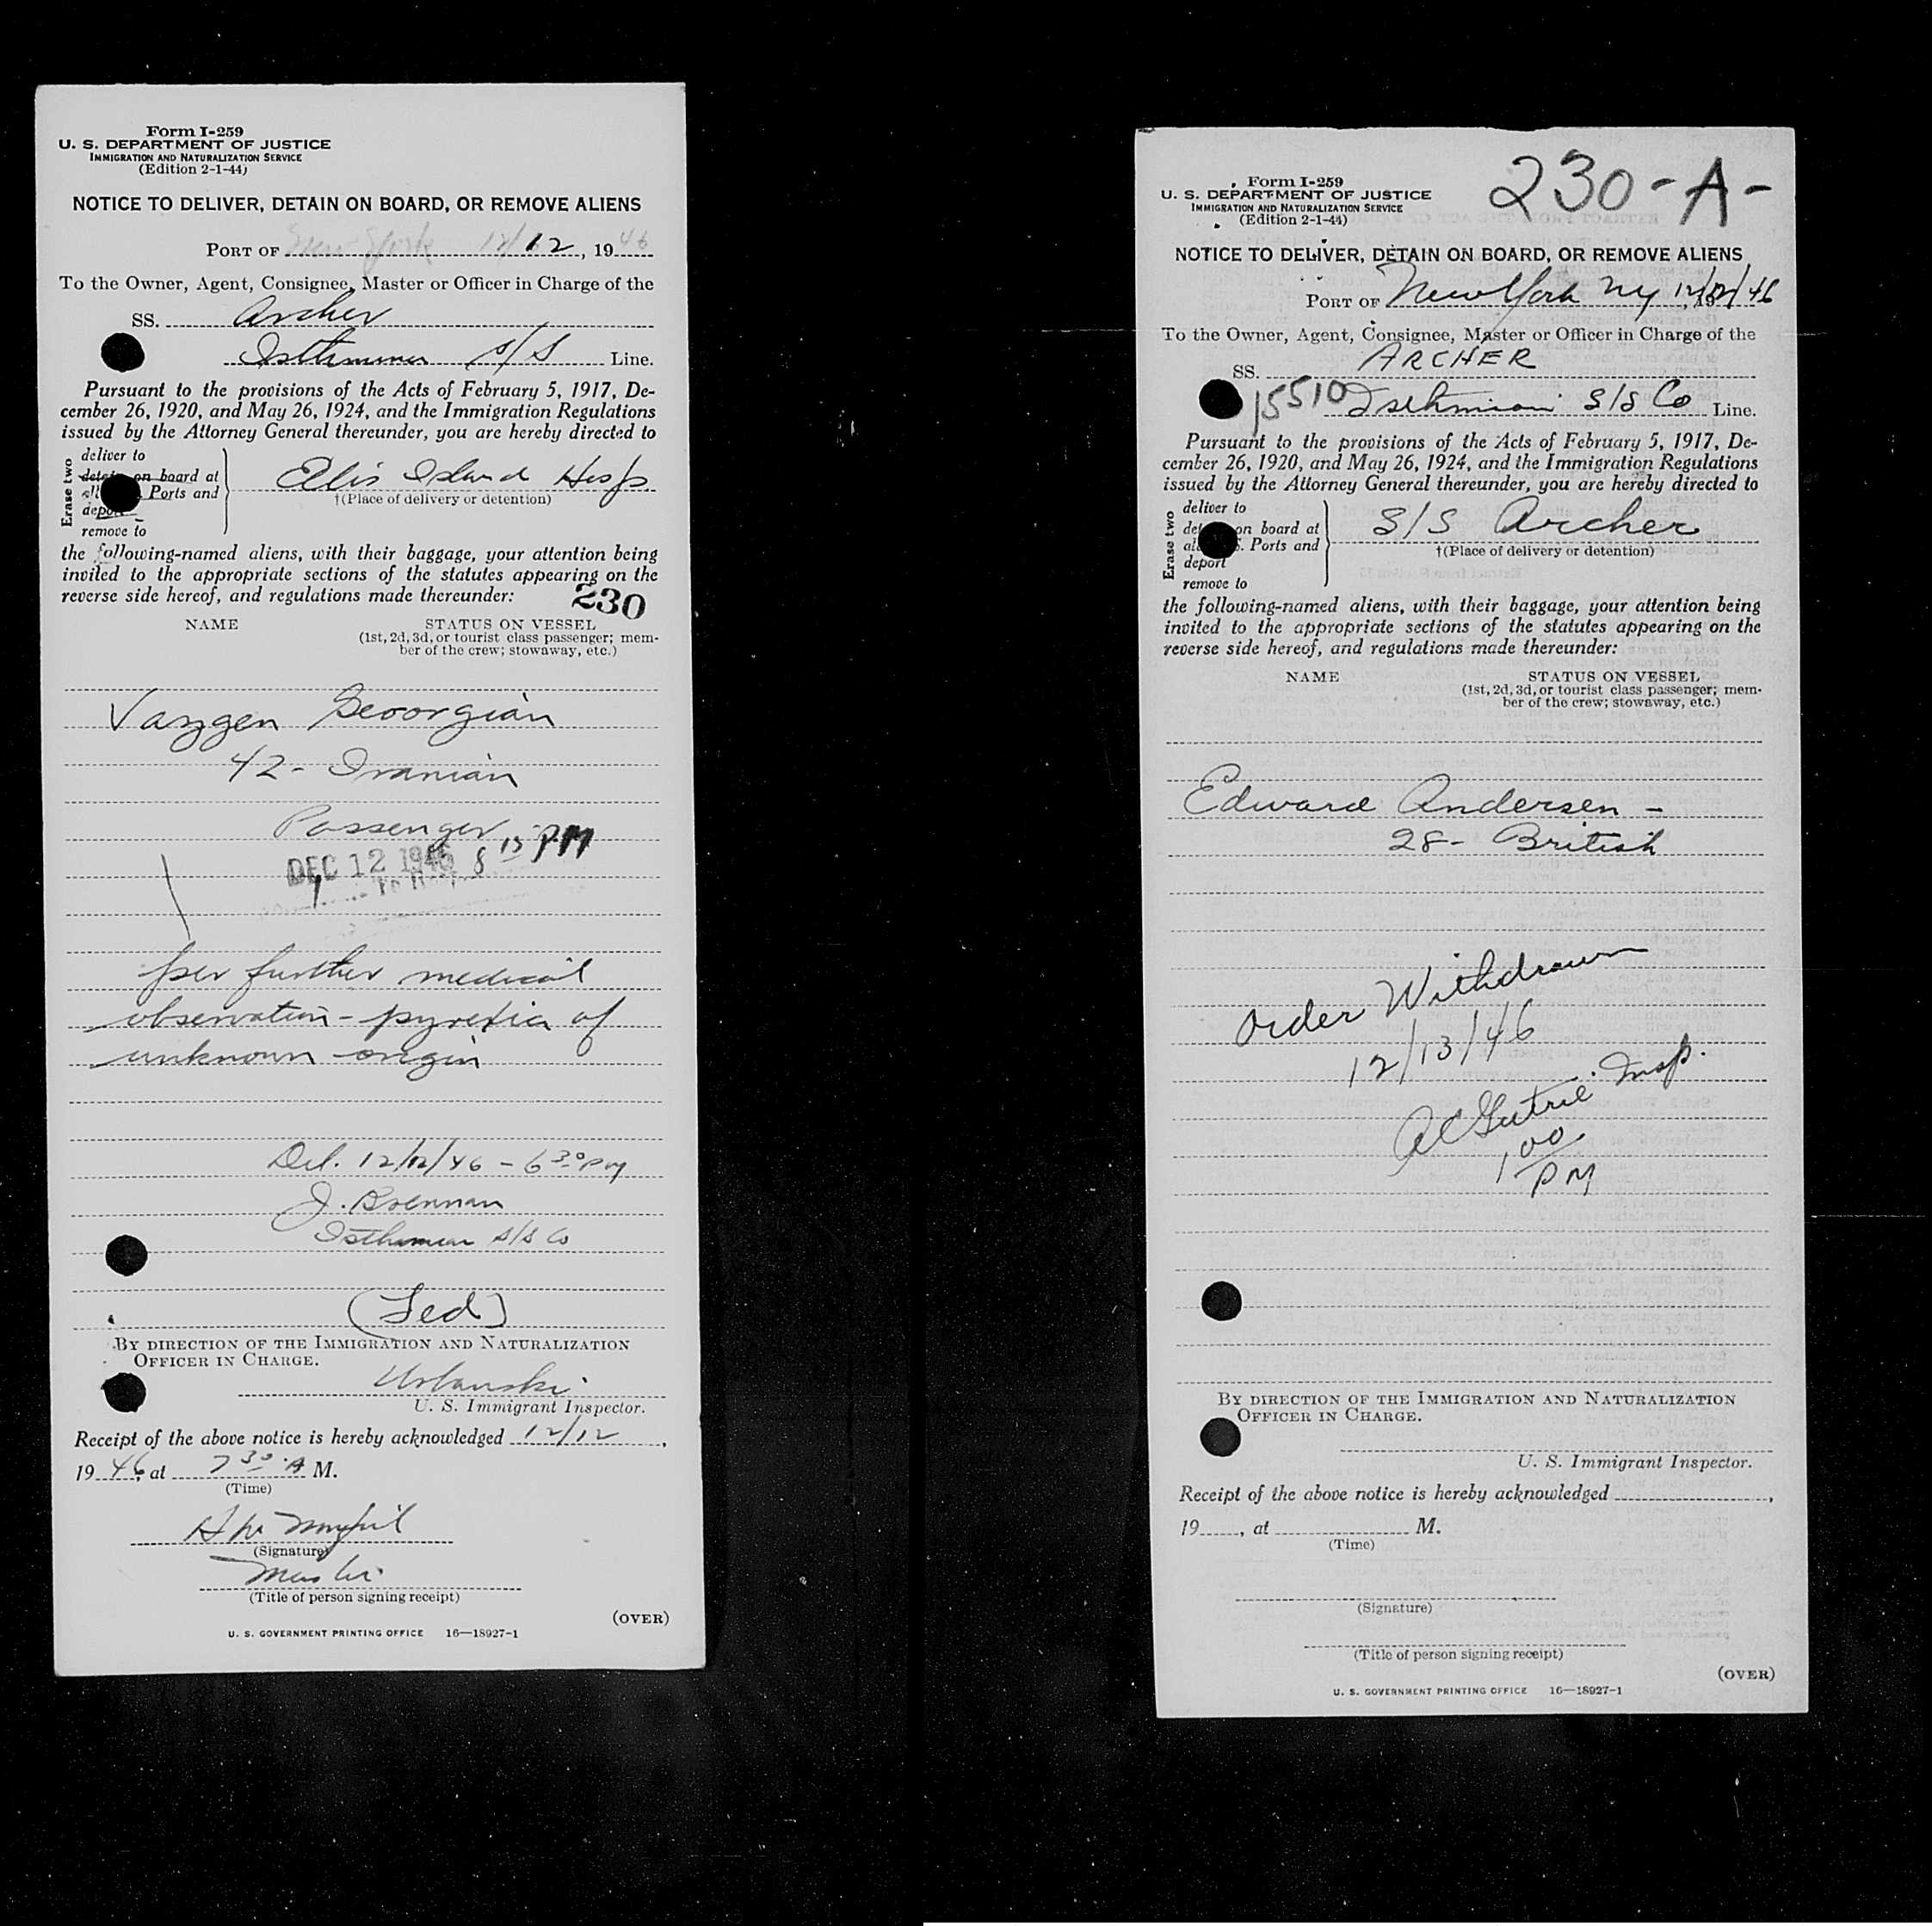 Form I-259
U. S. DEPARTMENT OF JUSTICE
IMMIGRATION AND NATURALIZATION SERVICE
(Edition 2-1-44)
NOTICE TO DELIVER, DETAIN ON BOARD, OR REMOVE ALIENS
PORT OF New York 12/12, 1946
To the Owner, Agent, Consignee, Master or Officer in Charge of the
SS. Archer
Isthmian S/S Line.
Pursuant to the provisions of the Acts of February 5, 1917, De-
cember 26, 1920, and May 26, 1924, and the Immigration Regulations
issued by the Attorney General thereunder, you are hereby directed to
Erase two
deliver to
on board at
Ports and
remove to
Elis Island Hosp
†(Place of delivery or detention)
the following-named aliens, with their baggage, your attention being
invited to the appropriate sections of the statutes appearing on the
reverse side hereof, and regulations made thereunder:
230
NAME STATUS ON VESSEL
(1st, 2d, 3d, or tourist class passenger; mem-
ber of the crew; stowaway, etc.)
Vazgen Gevorgian
42- Iranian
Passenger
DEC 12 1946 8 15 PM
for further medical
observation - pyrexia of
unknown origin
Del. 12/12/46 - 6 30 PM
J. Brennan
Isthmian S/S Co
BY DIRECTION OF THE IMMIGRATION AND NATURALIZATION
OFFICER IN CHARGE.
Urbanski
U. S. Immigrant Inspector.
Receipt of the above notice is hereby acknowledged 12/12,
1946, at 7 30 A M.
(Time)
(Signature)
(Title of person signing receipt)
(OVER)
U. S. GOVERNMENT PRINTING OFFICE 16—18927-1
230-A-
Form I-259
U. S. DEPARTMENT OF JUSTICE
IMMIGRATION AND NATURALIZATION SERVICE
(Edition 2-1-44)
NOTICE TO DELIVER, DETAIN ON BOARD, OR REMOVE ALIENS
PORT OF New York NY 12/12/46
To the Owner, Agent, Consignee, Master or Officer in Charge of the
SS. ARCHER
15510 Isthmian S/S Co Line.
Pursuant to the provisions of the Acts of February 5, 1917, De-
cember 26, 1920, and May 26, 1924, and the Immigration Regulations
issued by the Attorney General thereunder, you are hereby directed to
Erase two
deliver to
on board at
Ports and
deport
remove to
S/S Archer
†(Place of delivery or detention)
the following-named aliens, with their baggage, your attention being
invited to the appropriate sections of the statutes appearing on the
reverse side hereof, and regulations made thereunder:
NAME STATUS ON VESSEL
(1st, 2d, 3d, or tourist class passenger; mem-
ber of the crew; stowaway, etc.)
Edward Andersen -
28- British
Order Withdrawn
12/13/46
AC Gutrie Insp.
1 00
PM
BY DIRECTION OF THE IMMIGRATION AND NATURALIZATION
OFFICER IN CHARGE.
U. S. Immigrant Inspector.
Receipt of the above notice is hereby acknowledged ,
19 , at M.
(Time)
(Signature)
(Title of person signing receipt)
(OVER)
U. S. GOVERNMENT PRINTING OFFICE 16—18927-1